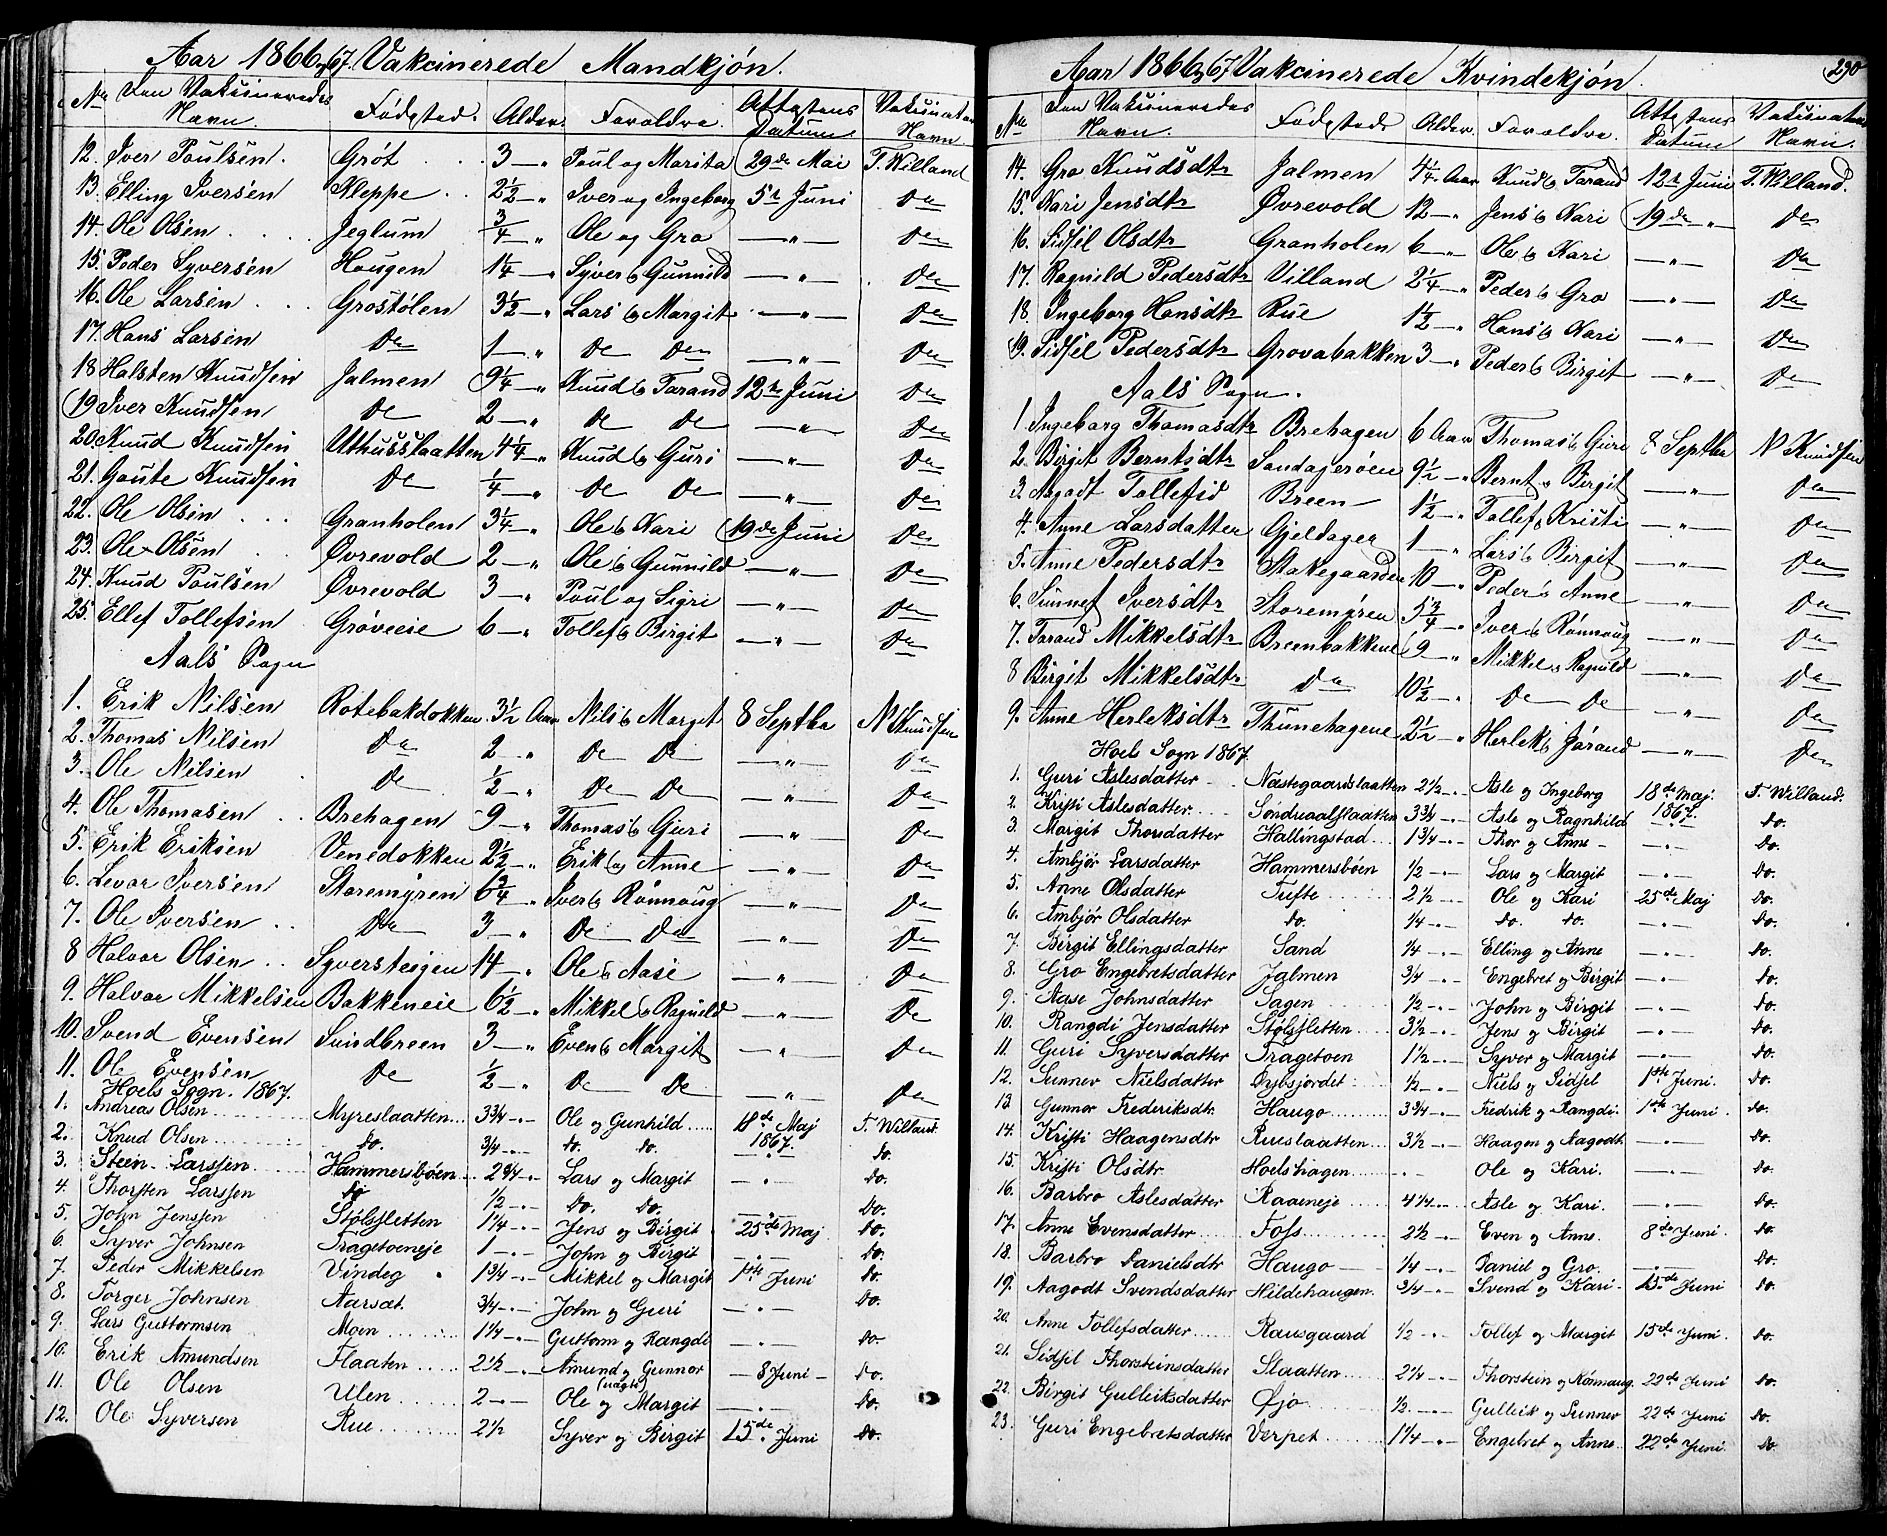 Aar 1866 og 67. Vakcinerede Mandkjøn.
No Den Vaksineredes Navn. Fødested. Alder. Forældre. Attestens Datum Vaksinatørs Navn
12. Iver Poulsen. Grøt 3 — " Poul og Marita 29de Mai T. Willand
13. Elling Iversen Kleppe 2 1/2 — " Iver og Ingeborg 5te Juni Do
14. Ole Olsen Jeglum 3/4 — " Ole og Gro — " — Do
15. Peder Syversen Haugen 1 1/4 — " Syver og Gunnild — " — Do
16. Ole Larsen Grostølen 3 1/2 — " Lars og Margit — " — Do
17. Hans Larsen Do 1 — " Do Do — " — Do
18 Halsten Knudsen Jalmen 9 1/4 — " Knud og Tarand 12te Juni Do
19 Iver Knudsen Do 2 — " Do Do — " — Do
20. Knud Knudsen Uthusslaatten 4 1/4 — " Knud og Guri — " — Do
21. Goute Knudsen Do 1/4 — " Do Do — " — Do
22. Ole Olsen Granholen 3 1/4 — " Ole og Kari 19de Juni Do
23. Ole Olsen Øvrevold 2 — " Ole og Gunnild — " — Do
24. Knud Poulsen Øvrevold 3 — " Poul og Sigri — " — Do
25. Ellef Tollefsen Grøveeie 6 — " Tollef og Birgit — " — Do
Aals Sogn
1. Erik Nilsen Rotebakdokken 3 1/2 Aar Nils og Marget 8 Septbr N Knudsen
2. Thomas Nilsen Do 2 — " Do Do — " — Do
3. Ole Nilsen Do 1/2 — " Do Do — " — Do
4. Ole Thomasen Brehagen 9 — " Thomas og Guri — " — Do
5. Erik Eriksen Venedokken 2 1/2 — " Erik og Anne — " — Do
6. Levor Iversen Storemyren 6 3/4 — " Iver og Rønnoug — " — Do
7. Ole Iversen Do 3 — " Do Do — " — Do
8 Halvor Olsen Syversteigen 14 — " Ole og Aase — " — Do
9. Halvor Mikkelsen Bakkeneie 6 1/2 — " Mikkel og Ragnild — " — Do
10. Svend Evensen Svindbreen 3 — " Even og Margit — " — Do
11. Ole Evensen Do 1/2 — " Do Do — " — Do
Hoels Sogn. 1867.
1. Andreas Olsen Myreslaatten 3 3/4 — " Ole og Gunhild 18de Maj 1867. T. Willand.
2. Knud Olsen do. 3/4 — " do. do. — " — do.
3. Steen Larssen Hammersbøen 2 3/4 — " Lars og Margit — " — do.
4. Thorsten Larssen do 1/2 — " do. do. — " — do.
5. John Jenssen Stølssletten 1 1/4 — " Jens og Birgit 25de Maj do.
6. Syver Johnsen Tragetoeneje 1 — " John og Birgit — " — do.
7. Peder Mikkelsen Vindeg 1 3/4 — " Mikkel og Margit 1ste Juni do.
8. Torger Johnsen Aarsæt. 3/4 — " John og Guri — " — do.
9. Lars Guttormsen Moen 1 1/4 — " Guttorm og Rangdi — " — do.
10. Erik Amundsen Flaaten 2 1/2 — " Amund og Gunnor — 8 Juni — do.
11. Ole Olsen Ulen 2 — " Ole og Margit — " — do.
12. Ole Syversen Rue 2 1/2 Syver og Birgit 15de Juni do.
Aar 1866 og 67 Vakcinerede Kvindekjøn. 290
No Den Vaksineredes Navn. Fødested Alder. Forældre. Attestens Datum Vaksinatørs Navn.
14. Gro Knudsdtr Jalmen 4 1/4 Aar Knud og Tarand 12te Juni T. Willand.
15. Kari Jensdtr Øvrevold 12 — " Jens og Kari 19de " Do
16. Sidsel Olsdtr Granholen 6 — " Ole og Kari — " — Do
17. Ragnild Pedersdtr Villand 2 1/4 — " Peder og Gro — " — Do
18. Ingeborg Hansdtr Rue 1 1/2 — " Hans og Kari — " — Do
19. Sidsel Pedersdtr Grovabakken 3 — " Peder og Birgit — " — Do
Aals Sogn.
1. Ingeborg Thomasdtr Brehagen 6 Aar Thomas og Guri 8 Septbr N Knudsen
2. Birgit Berntsdtr Sandagerøen 9 1/2 — " Bernt og Birgit — " — Do
3. Aagodt Tollefsd Breen 1 1/2 — " Tollef og Kristi — " — Do
4. Anne Larsdatter Gjeldager 1 — " Lars og Birgit — " — Do
5. Anne Pedersdtr Stakegaarden 10 — " Peder og Anne — " — Do
6. Sunnef Iversdtr Storemyren 5 3/4 — " Iver og Rønnoug — " — Do
7. Tarand Mikkelsdtr Breenbakkene 9 — " Mikkel og Ragnild — " — Do
8 Birgit Mikkelsdtr Do 10 1/2 — " Do Do — " — Do
9. Anne Herleksdtr Thunehagene 2 1/2 — " Herlek og Jørand — " — Do
Hoels Sogn 1867
1. Guri Aslesdatter Næstegaardslaatten 2 1/2 — " Asle og Ingeborg 18de Maj 1867. T. Willand.
2. Kristi Aslesdatter Søndreaalslaatten 3 3/4 — " Asle og Ragnhild do.
3. Margit Thorsdatter Hallingstad 1 3/4 — " Thor og Anne — " — do.
4. Ambjør Larsdatter Hammersbøen 1/2 — " Lars og Margit — " — do.
5. Anne Olsdatter Tufte 2 1/2 — " Ole og Kari 25de Maj do.
6. Ambjør Olsdatter do. 1/4 — " do. do. — " — do.
7. Birgit Ellingsdatter Sand 1/4 — " Elling og Anne — " — do.
8. Gro Engebretsdatter Jalmen 3/4 — " Engebret og Birgit — " — do.
9. Aase Johnsdatter Sagen 1/2 — " John og Birgit — " — do.
10. Rangdi Jensdatter Stølssletten 3 1/2 — " Jens og Birgit — " — do.
11. Guri Syversdatter Tragetoen 1 1/2 — " Syver og Margit — " — do.
12. Sunnev Nielsdatter Øybsjordet 1/2 — " Niels og Sidsel 1ste Juni. do.
13. Gunnor Frederiksdtr Haugo 3 3/4 — " Fredrik og Rangdi. 1ste Juni do.
14. Kristi Haagensdtr Ruuslaatten 3 1/2 — " Haagen og Aagodt — " — do.
15. Kristi Olsdtr. Hoelshagen — " Ole og Kari. — " — do.
16. Barbro Aslesdatter Raaeneje 4 1/4 — " Asle og Kari. — " — do.
17. Anne Evensdatter Foss 2 1/2 — " Even og Anne. 8de Juni do.
18. Barbro Danielsdtr Haugo 1/4 — " Daniel og Gro. — " — do.
19. Aagodt Svendsdatter Hildehaugen 3/4 — " Svend og Kari 15de Juni do.
20. Anne Tollefsdatter Rausgaard 1/2 — " Tollef og Margit 15de Juni. do.
21. Sidsel Thorsteinsdatter Slaatten 2 1/4 — " Thorstein og Rønnaug. 22de Juni do.
22. Birgit Gulleiksdatter Øjo 1/2 — " Gulleik og Sunnev 22de Juni do.
23. Guri Engebretsdatter Verpet 1 1/4 — " Engebret og Anne 22de Juni. do.